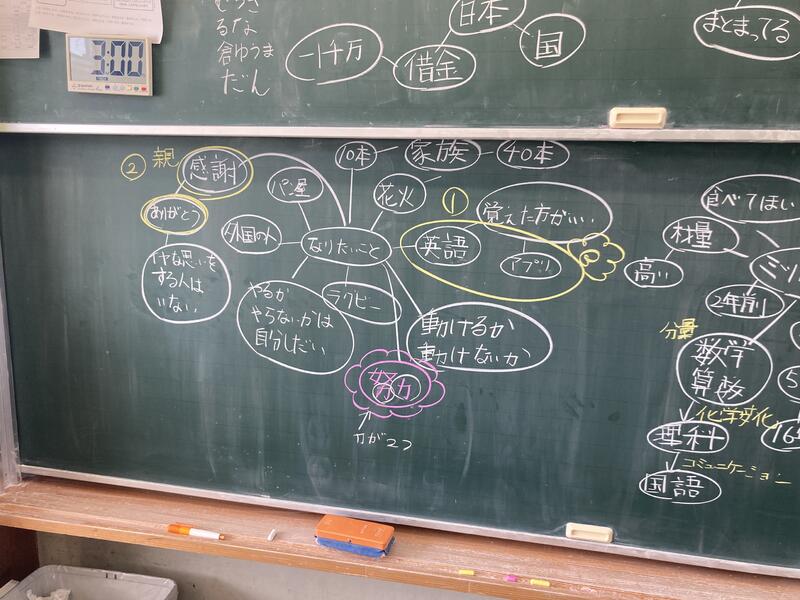 るな
倉ゆうま
だん
一千万
借金
日本
国
まとまってる
3:00
② 親
感謝
ありがとう
イヤな思いを
する人は
いない
10本
家族
40本
パン屋
花火
外国の人
なりたいこと
①
英語
覚えた方がいい
アプリ
やるか
やらないかは
自分しだい
ラグビー
動けるか
動けないか
努力
力が2つ
食べてほしい
材量
高い
2年前
分量
数学
算数
化学変化
理科
コミュニケーション
国語